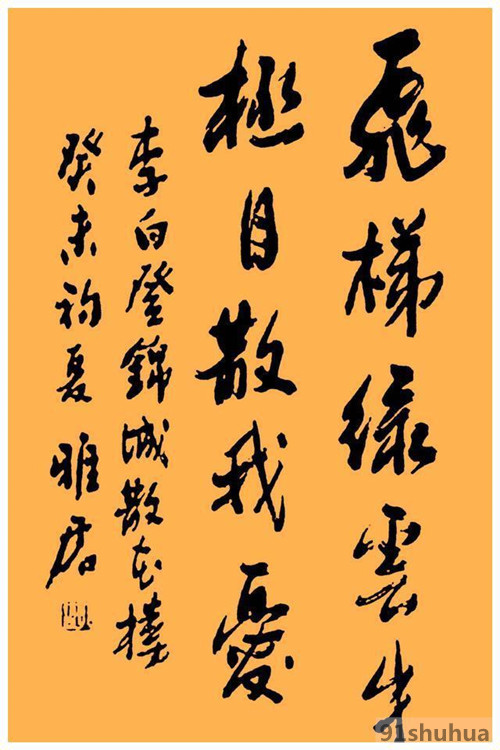 飛梯綠雲中
極目散我憂
李白登錦城散花樓
癸未初夏 雅居
91shuhua